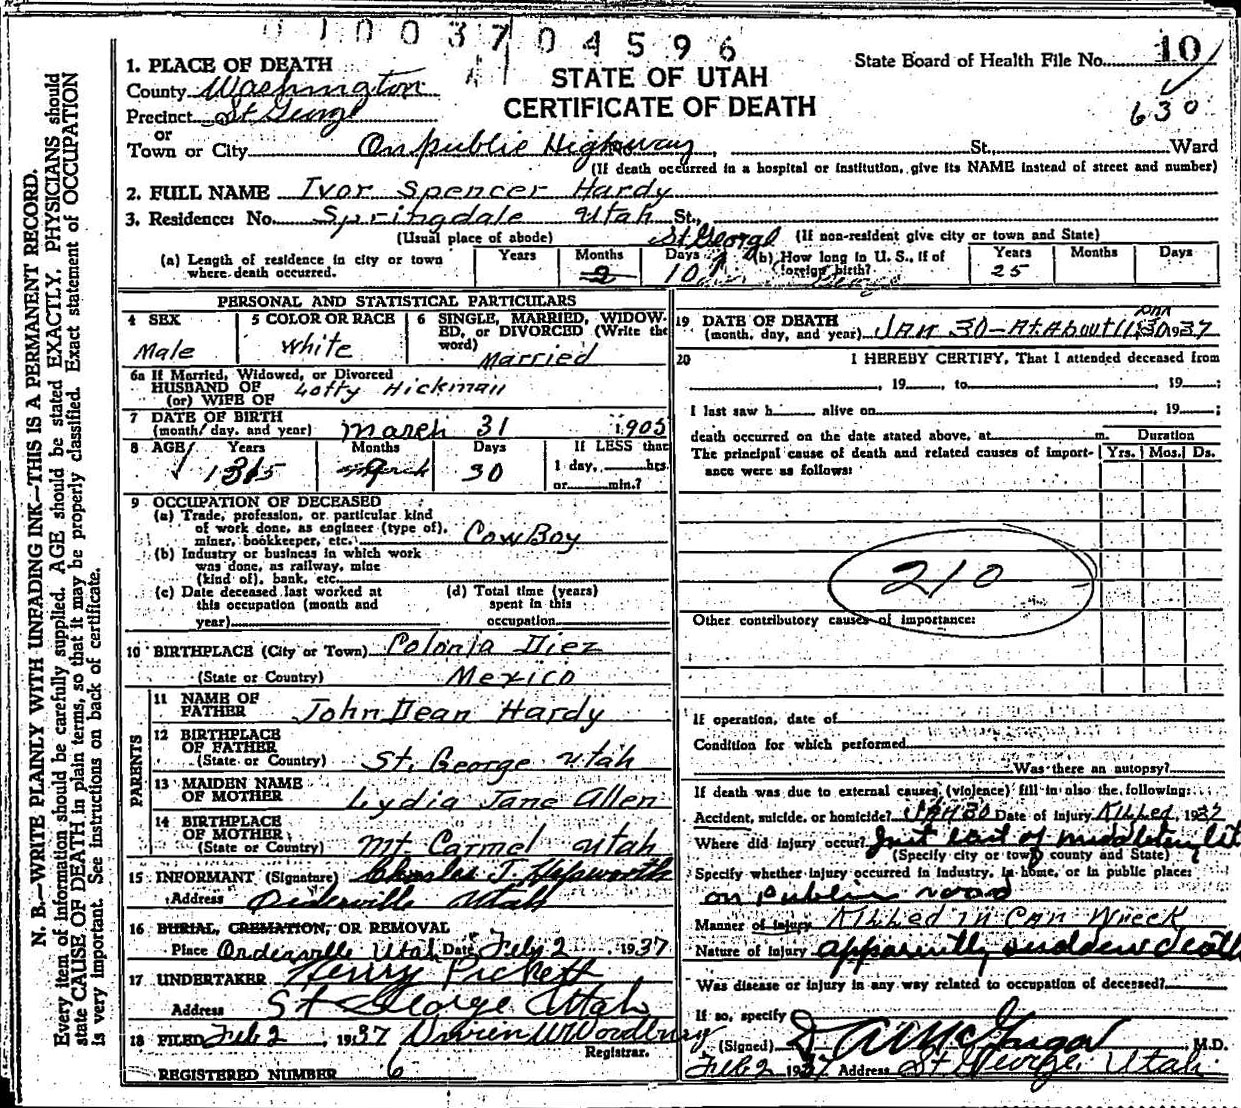 01003704596
State Board of Health File No. 10
630
STATE OF UTAH
CERTIFICATE OF DEATH
N. B.—WRITE PLAINLY WITH UNFADING INK—THIS IS A PERMANENT RECORD.
Every item of information should be carefully supplied. AGE should be stated EXACTLY. PHYSICIANS should
state CAUSE OF DEATH in plain terms, so that it may be properly classified. Exact statement of OCCUPATION
is very important. See instructions on back of certificate.
1. PLACE OF DEATH
County Washington
Precinct St George
or
Town or City On public Highway, St., Ward
(If death occurred in a hospital or institution, give its NAME instead of street and number)
2. FULL NAME Ivor Spencer Hardy
3. Residence: No. Springdale Utah St.,
(Usual place of abode) St George (If non-resident give city or town and State)
(a) Length of residence in city or town where death occurred. Years Months 2 Days 10
(b) How long in U. S., if of foreign birth? Years 25 Months Days
PERSONAL AND STATISTICAL PARTICULARS
4 SEX Male
5 COLOR OR RACE White
6 SINGLE, MARRIED, WIDOWED, or DIVORCED (Write the word) Married
6a If Married, Widowed, or Divorced
HUSBAND OF Lotty Hickman
(or) WIFE OF
7 DATE OF BIRTH
(month, day, and year) March 31 1905
8 AGE Years Months Days 30 If LESS than
1 day, hrs.
or min.?
9 OCCUPATION OF DECEASED
(a) Trade, profession, or particular kind
of work done, as engineer (type of),
miner, bookkeeper, etc. CowBoy
(b) Industry or business in which work
was done, as railway, mine
(kind of), bank, etc.
(c) Date deceased last worked at
this occupation (month and
year)
(d) Total time (years)
spent in this
occupation
10 BIRTHPLACE (City or Town) Colonia Diez
(State or Country) Mexico
PARENTS
11 NAME OF FATHER John Dean Hardy
12 BIRTHPLACE OF FATHER
(State or Country) St. George Utah
13 MAIDEN NAME OF MOTHER Lydia Jane Allen
14 BIRTHPLACE OF MOTHER
(State or Country) Mt Carmel Utah
15 INFORMANT (Signature) Charles J. Hepworth
Address Orderville Utah
16 BURIAL, CREMATION, OR REMOVAL
Place Orderville Utah Date Feb 2 1937
17 UNDERTAKER Henry Pickett
Address St George Utah
18 FILED Feb 2, 1937 W Woodbury
Registrar.
REGISTERED NUMBER 6
19 DATE OF DEATH
(month, day, and year) JAN 30 - At About 11:30 1937
20 I HEREBY CERTIFY, That I attended deceased from
, 19 , to , 19 ;
I last saw h alive on , 19 ;
death occurred on the date stated above, at m. Duration
The principal cause of death and related causes of importance were as follows: Yrs. Mos. Ds.
210
Other contributory causes of importance:
If operation, date of
Condition for which performed
Was there an autopsy?
If death was due to external causes (violence) fill in also the following:
Accident, suicide, or homicide? JAN 30 Date of injury Killed 1937
Where did injury occur? Just East of Middleton
(Specify city or town county and State)
Specify whether injury occurred in industry, in home, or in public place:
on public road
Manner of injury KILLED IN CAR WRECK
Nature of injury apparently sudden death
Was disease or injury in any way related to occupation of deceased?
If so, specify
(Signed) McGregor M.D.
Feb 2 1937 Address St George, Utah